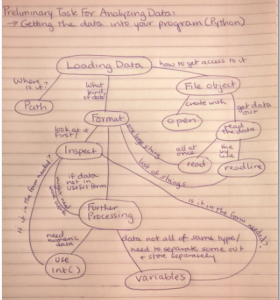 Preliminary Task For Analyzing Data:
→ Getting the data into your program (Python)
Loading Data
how to get access to it
Where is it?
What kind of data
File object
Path
create with
get data out
Format
open
read the data
look at it first!
one large string
all at once
line by line
Inspect
list of strings
read
readline
is it in the form needed?
is it in the form needed?
if data not in usable form
Further Processing
need numeric data
data not all of same type/
need to separate some out
+ store separately
use int()
variables